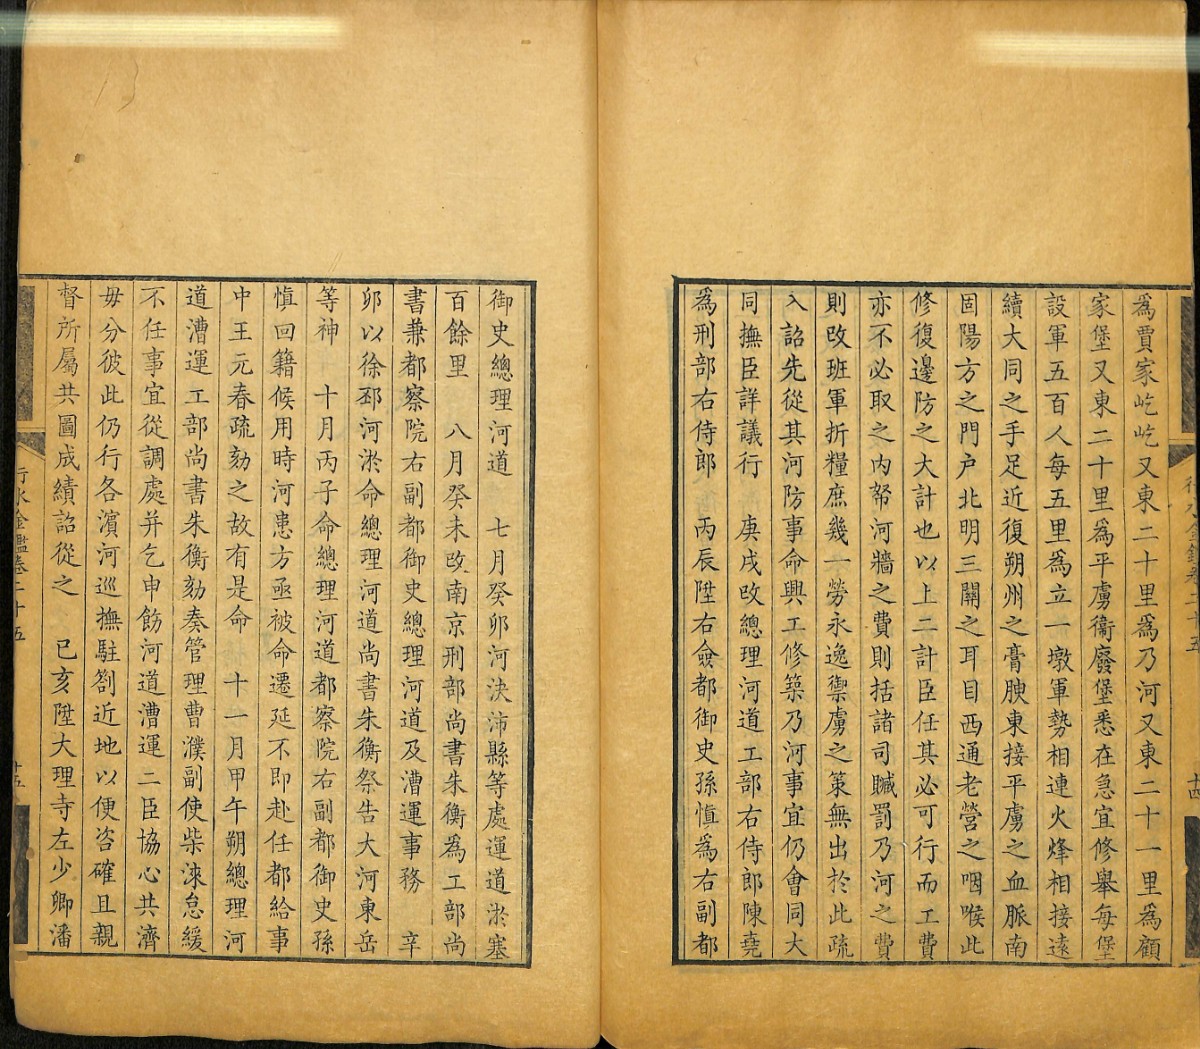 爲賈家屹屹又東二十里爲乃河又東二十一里爲顧
家堡又東二十里爲平虜衞廢堡悉在急宜修舉每堡
設軍五百人每五里爲立一墩軍勢相連火烽相接遠
續大同之手足近復朔州之膏腴東接平虜之血脈南
固陽方之門户北明三關之耳目西通老營之咽喉此
修復邊防之大計也以上二計臣任其必可行而工費
亦不必取之内帑河牆之費則括諸司贓罰乃河之費
則改班軍折糧庶幾一勞永逸禦虜之策無出於此疏
入詔先從其河防事命興工修築乃河事宜仍會同大
同撫臣詳議行　庚戌改總理河道工部右侍郎陳堯
爲刑部右侍郎　丙辰陞右僉都御史孫愼爲右副都
御史總理河道　七月癸卯河決沛縣等處運道淤塞
百餘里　八月癸未改南京刑部尚書朱衡爲工部尚
書兼都察院右副都御史總理河道及漕運事務　辛
卯以徐邳河淤命總理河道尚書朱衡祭告大河東岳
等神　十月丙子命總理河道都察院右副都御史孫
愼回籍候用時河患方亟被命遷延不即赴任都給事
中王元春疏劾之故有是命　十一月甲午朔總理河
道漕運工部尚書朱衡劾奏管理曹濮副使柴淶怠緩
不任事宜從調處并乞申飭河道漕運二臣協心共濟
毋分彼此仍行各濱河巡撫駐劄近地以便咨確且親
督所屬共圖成績詔從之　已亥陞大理寺左少卿潘
行水金鑑卷二十五
十五